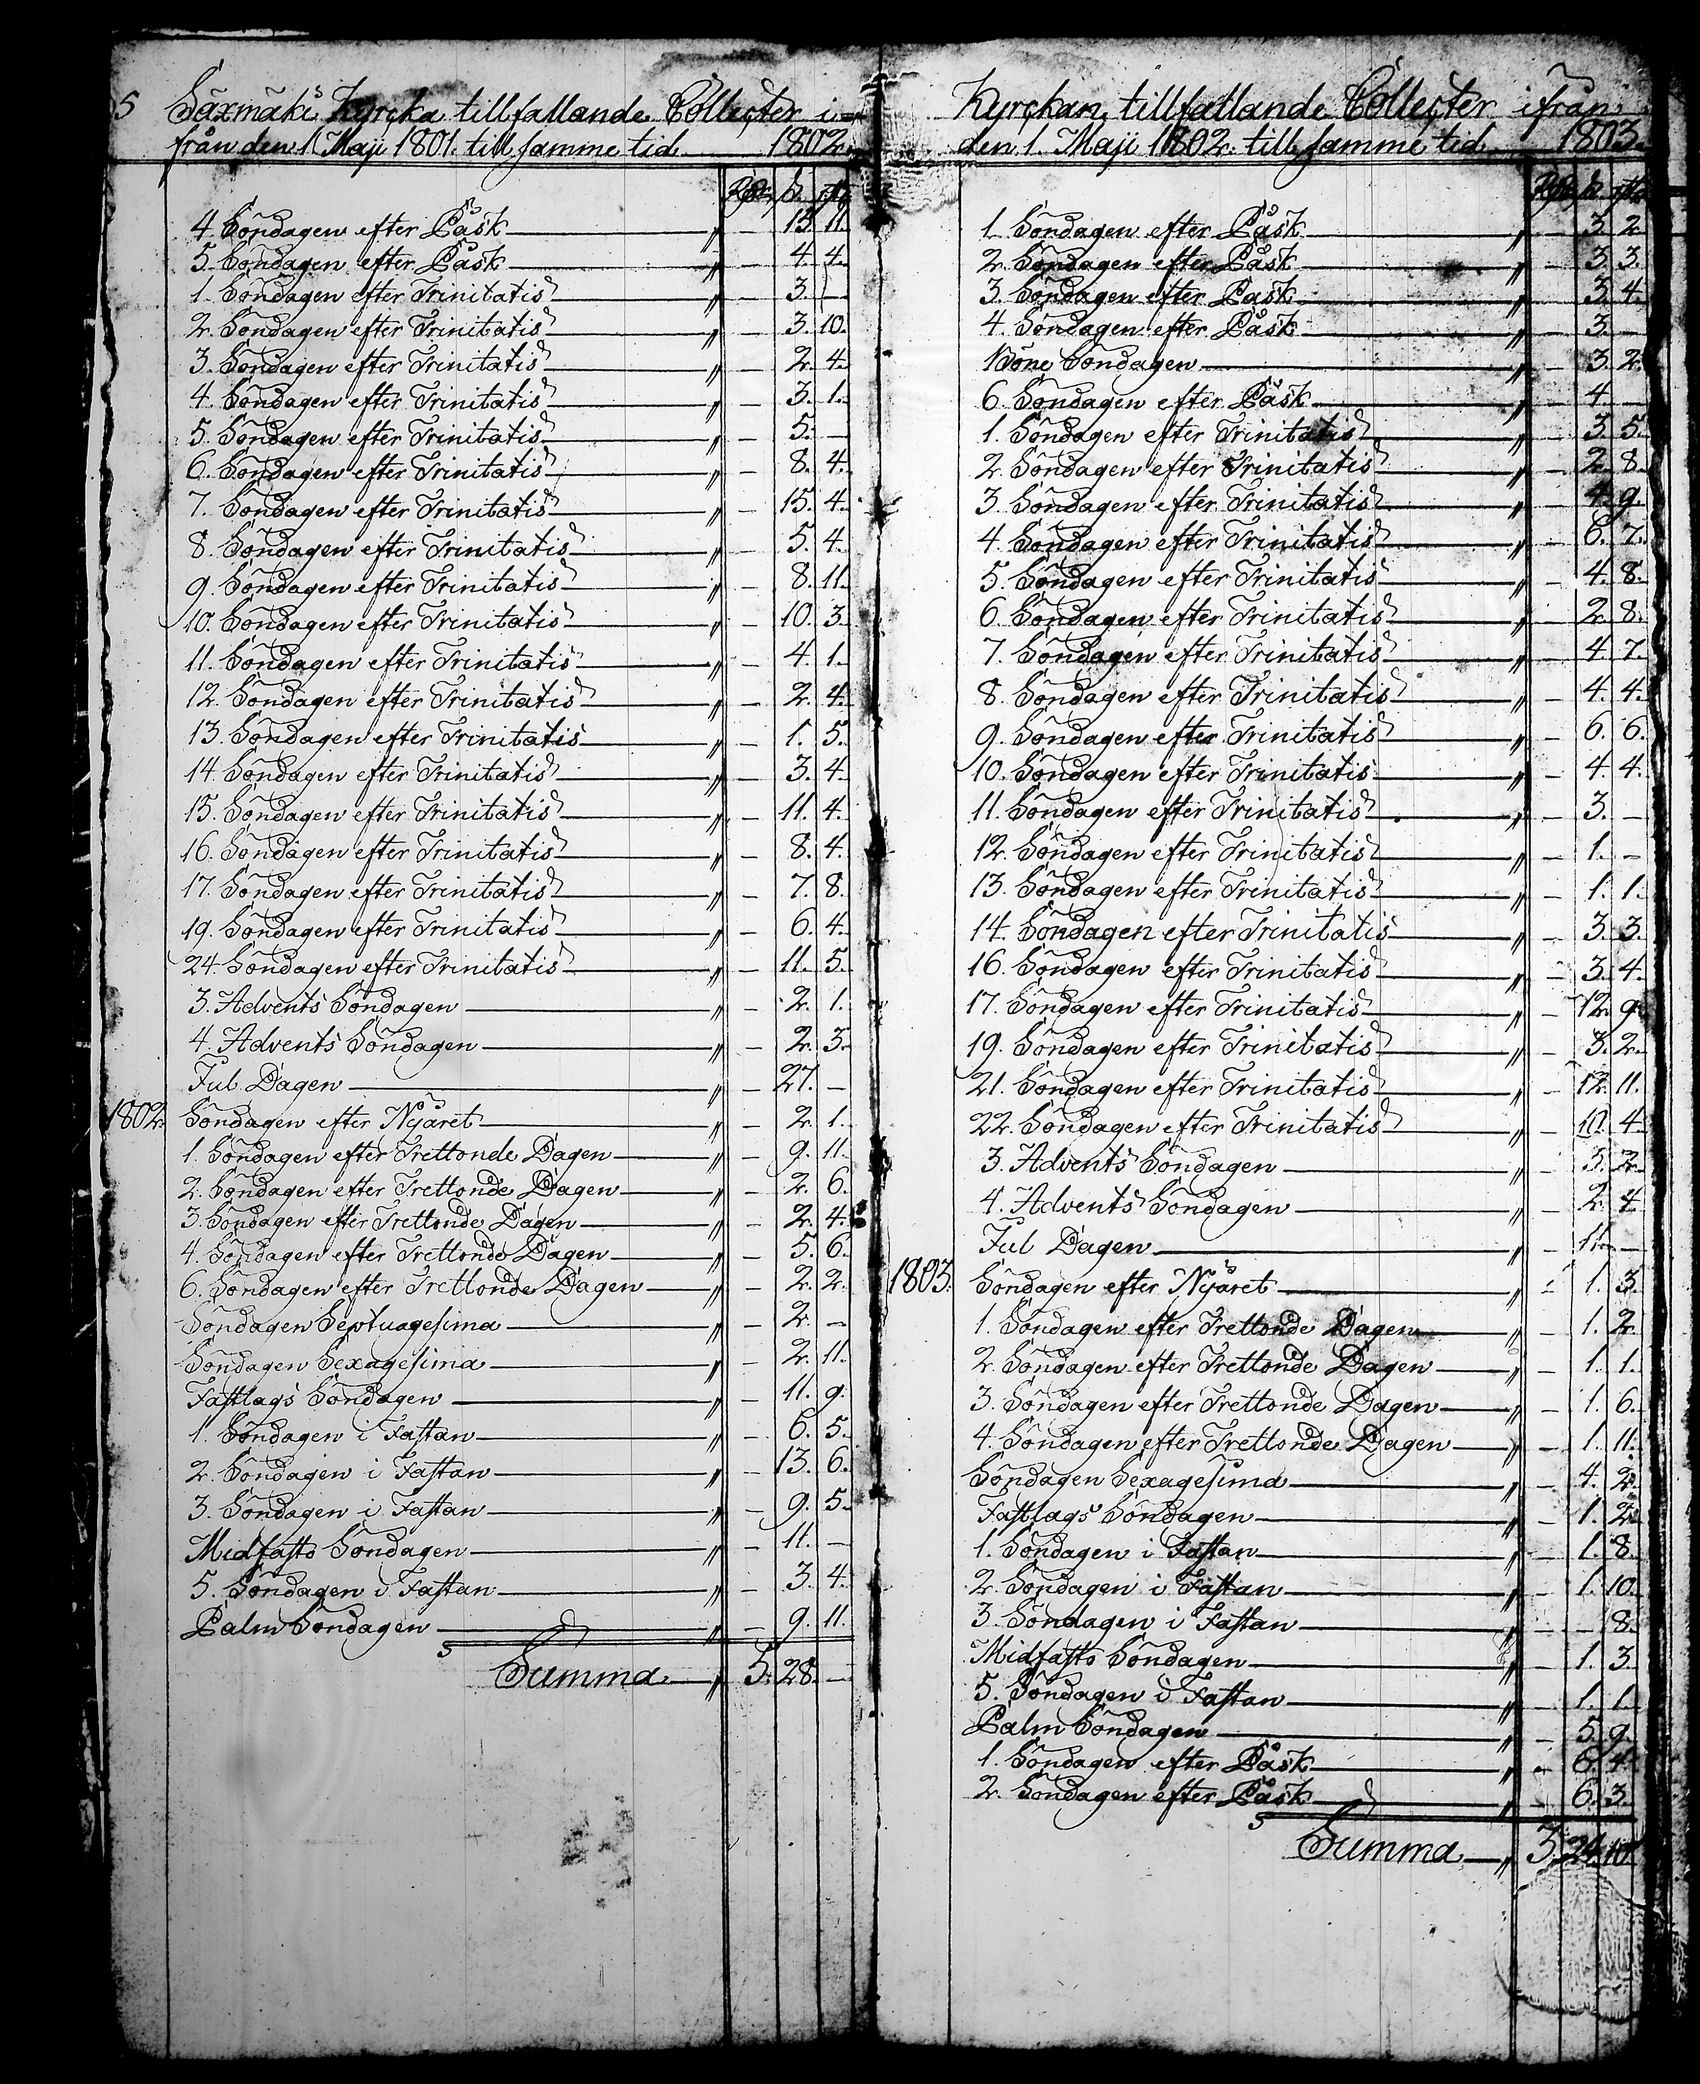 5 Säxmäki Kyrcka tillfallande Collecter i=
från den 1 Maji 1801. till samme tid 1802.
Rdr. s. rst.
4. Söndagen efter Påsk " — 15. 11.
5. Söndagen efter Påsk " — 4. 4.
1. Söndagen efter Trinitatis " — 3. —
2. Söndagen efter Trinitatis " — 3. 10.
3. Söndagen efter Trinitatis " — 2. 4.
4. Söndagen efter Trinitatis " — 3. 1.
5. Söndagen efter Trinitatis " — 5. —
6. Söndagen efter Trinitatis " — 8. 4.
7. Söndagen efter Trinitatis " — 15. 4.
8. Söndagen efter Trinitatis " — 5. 4.
9. Söndagen efter Trinitatis " — 8. 11.
10. Söndagen efter Trinitatis " — 10. 3.
11. Söndagen efter Trinitatis " — 4. 1.
12. Söndagen efter Trinitatis " — 2. 4.
13. Söndagen efter Trinitatis " — 1. 5.
14. Söndagen efter Trinitatis " — 3. 4.
15. Söndagen efter Trinitatis " — 11. 4.
16. Söndagen efter Trinitatis " — 8. 4.
17. Söndagen efter Trinitatis " — 7. 8.
19. Söndagen efter Trinitatis " — 6. 4.
24. Söndagen efter Trinitatis " — 11. 5.
3. Advents Söndagen " — 2. 1.
4. Advents Söndagen " — 2. 3.
Jul Dagen " — 27. —
1802. Söndagen efter Nyåret " — 2. 1.
1. Söndagen efter Trettonde Dagen " — 9. 11.
2. Söndagen efter Trettonde Dagen " — 2. 6.
3. Söndagen efter Trettonde Dagen " — 2. 4.
4. Söndagen efter Trettonde Dagen " — 5. 6.
6. Söndagen efter Trettonde Dagen " — 2. 2.
Söndagen Septuagesima " — 2. —
Söndagen Sexagesima " — 2. 11.
Fastlags Söndagen " — 11. 9.
1. Söndagen i Fastan " — 6. 5.
2. Söndagen i Fastan " — 13. 6.
3. Söndagen i Fastan " — 9. 5.
Midfasto Söndagen " — 11. —
5. Söndagen i Fastan " — 3. 4.
Palm Söndagen " — 9. 11.
Summa " 5. 28. —
Kyrckan, tillfallande Collecter ifrån
den 1. Maji 1802. till samme tid 1803.
Rdr. s. rst.
1. Söndagen efter Påsk " — 3. 2.
2. Söndagen efter Påsk " — 3. 3.
3. Söndagen efter Påsk " — 3. 4.
4. Söndagen efter Påsk " — 3. —
Böne Söndagen " — 3. 2.
6. Söndagen efter Påsk " — 4. —
1. Söndagen efter Trinitatis " — 3. 5.
2. Söndagen efter Trinitatis " — 2. 8.
3. Söndagen efter Trinitatis " — 4. 9.
4. Söndagen efter Trinitatis " — 6. 7.
5. Söndagen efter Trinitatis " — 4. 8.
6. Söndagen efter Trinitatis " — 2. 8.
7. Söndagen efter Trinitatis " — 4. 7.
8. Söndagen efter Trinitatis " — 4. 4.
9. Söndagen efter Trinitatis " — 6. 6.
10. Söndagen efter Trinitatis " — 4. 4.
11. Söndagen efter Trinitatis " — 3. —
12. Söndagen efter Trinitatis " — 1. —
13. Söndagen efter Trinitatis " — 1. 1.
14. Söndagen efter Trinitatis " — 3. 3.
16. Söndagen efter Trinitatis " — 3. 4.
17. Söndagen efter Trinitatis " — 12. 9.
19. Söndagen efter Trinitatis " — 3. 2.
21. Söndagen efter Trinitatis " — 12. 11.
22. Söndagen efter Trinitatis " — 10. 4.
3. Advents Söndagen " — 3. 2.
4. Advents Söndagen " — 2. 4.
Jul Dagen " — 11. —
1803. Söndagen efter Nyåret " — 1. 3.
1. Söndagen efter Trettonde Dagen " — 1. 2.
2. Söndagen efter Trettonde Dagen " — 1. 1.
3. Söndagen efter Trettonde Dagen " — 1. 6.
4. Söndagen efter Trettonde Dagen " — 1. 11.
Söndagen Sexagesima " — 4. 2.
Fastlags Söndagen " — 1. 2.
1. Söndagen i Fastan " — 1. 8.
2. Söndagen i Fastan " — 1. 10.
3. Söndagen i Fastan " — — 8.
Midfasto Söndagen " — 1. 3.
5. Söndagen i Fastan " — 1. 1.
Palm Söndagen " — 5. 9.
1. Söndagen efter Påsk " — 6. 4.
2. Söndagen efter Påsk " — 6. 3.
Summa " 3. 24. 10.